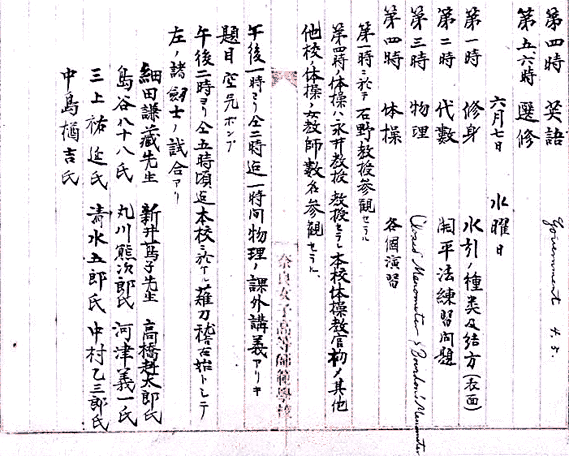 第四時 英語 Government A. J.
第五六時 選修
六月七日 水曜日
第一時 修身 水引ノ種類及結方(表面)
第二時 代數 開平法練習問題
第三時 物理 Closed Manometer & Bourdon's Manometer
第四時 体操 各個演習
第一時ニ於テ石野教授参観セラル
第四時ノ体操ハ永井教授教授セラレ本校体操教官初メ其他
他校ノ体操ノ女教師數名参観セラル、
奈良女子高等師範學校
午後一時ヨリ仝二時迄一時间物理ノ課外講義アリキ
題目 空気ポンプ
午後二時ヨリ仝五時頃迄本校ニ於ケル薙刀稽古始トシテ
左ノ諸劒士ノ試合アリ
細田謙藏先生 新井蔦子先生 高橋赳太郎氏
島谷八十八氏 丸川熊次郎氏 河津義一氏
三上祐迄氏 清水五郎氏 中村乙三郎氏
中島樀吉氏